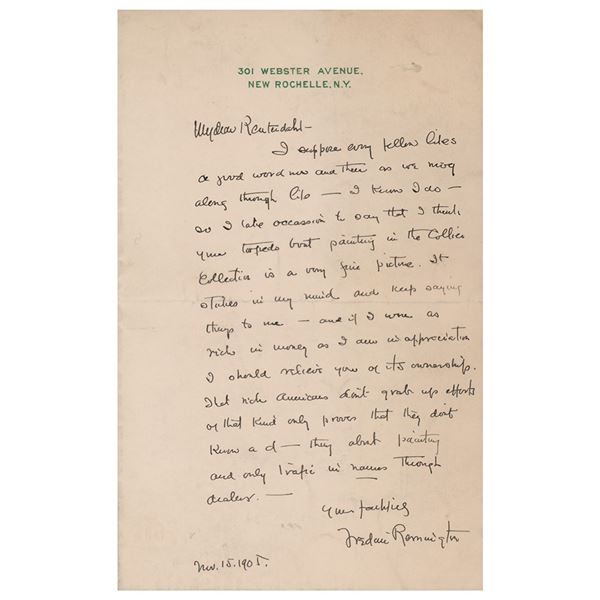 301 WEBSTER AVENUE,
NEW ROCHELLE, N.Y.
My dear Reuterdahl —
I suppose every fellow likes
a good word now and then as we mog
along through life — I know I do —
so I take occassion to say that I think
your torpedo boat painting in the Collier
Collection is a very fine picture. It
sticks in my mind and keeps saying
things to me — and if I were as
rich in money as I am in appreciation
I should relieve you of its ownership.
That rich Americans don't grab up efforts
of that kind only proves that they don't
know a d— thing about painting
and only trafic in names through
dealers. —
Yours faithfully
Frederic Remington
Nov. 15. 1905.